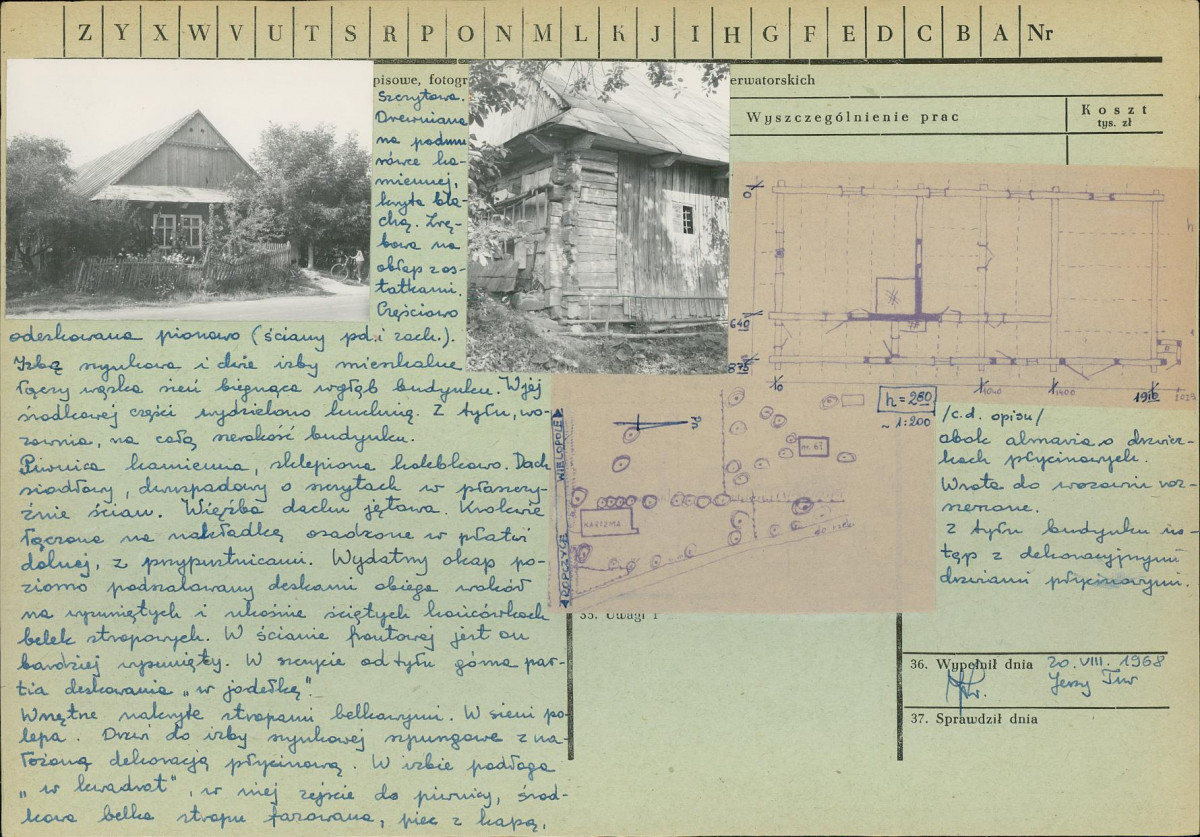 Z Y X W V U T S R P O N M L K J I H G F E D C B A Nr
pisowe, fotogr
erwatorskich
Wyszczególnienie prac
Koszt
tys. zł
Szczytowa.
Drewniana
na podmu
rówce ka-
miennej,
kryta bla-
chą. Zrę-
bowa na
obłap z os-
tatkami.
Częściowo
odeskowana pionowo (ściany pd. i zach.).
Izbą szynkowa i dwie izby mieszkalne
łączy wąska sień biegnąca wgłąb budynku. W jej
środkowej części wydzielono kuchnię. Z tyłu, wo-
zownia, na całą szerokość budynku.
Piwnica kamienna, sklepiona kolebkowo. Dach
siodłowy, dwuspadowy o szczytach w płaszczy-
źnie ścian. Więźba dachu jętowa. Krokwie
łączone na nakładkę osadzone w płatwi
dolnej, z przypustnicami. Wydatny okap po-
ziomo podszalowany deskami obiega wokół
na wysuniętych i ukośnie ściętych końcówkach
belek stropowych. W ścianie frontowej jest on
bardziej wysunięty. W szczycie od tyłu górna par-
tia deskowania „w jodełkę".
Wnętrze nakryte stropami belkowymi. W sieni po-
lepa. Drzwi do izby szynkowej szpungowe z na-
łożoną dekoracją płycinową. W izbie podłoga
„w kwadrat", w niej zejście do piwnicy, środ-
kowa belka stropu fazowana, piec z kapą,
0
640
875
0
1040
1400
1916
h = 280
~ 1:200
WIELOPOLE
ROPCZYCE
Pn
KARCZMA
nr. 62
/c.d. opisu/
obok almaria o drzwicz-
kach płycinowych.
Wrota do wozowni roz-
szerzone.
Z tyłu budynku us-
tęp z dekoracyjnymi
drzwiami płycinowymi.
35. Uwagi
36. Wypełnił dnia 20. VIII. 1968
Jerzy Tur
37. Sprawdził dnia